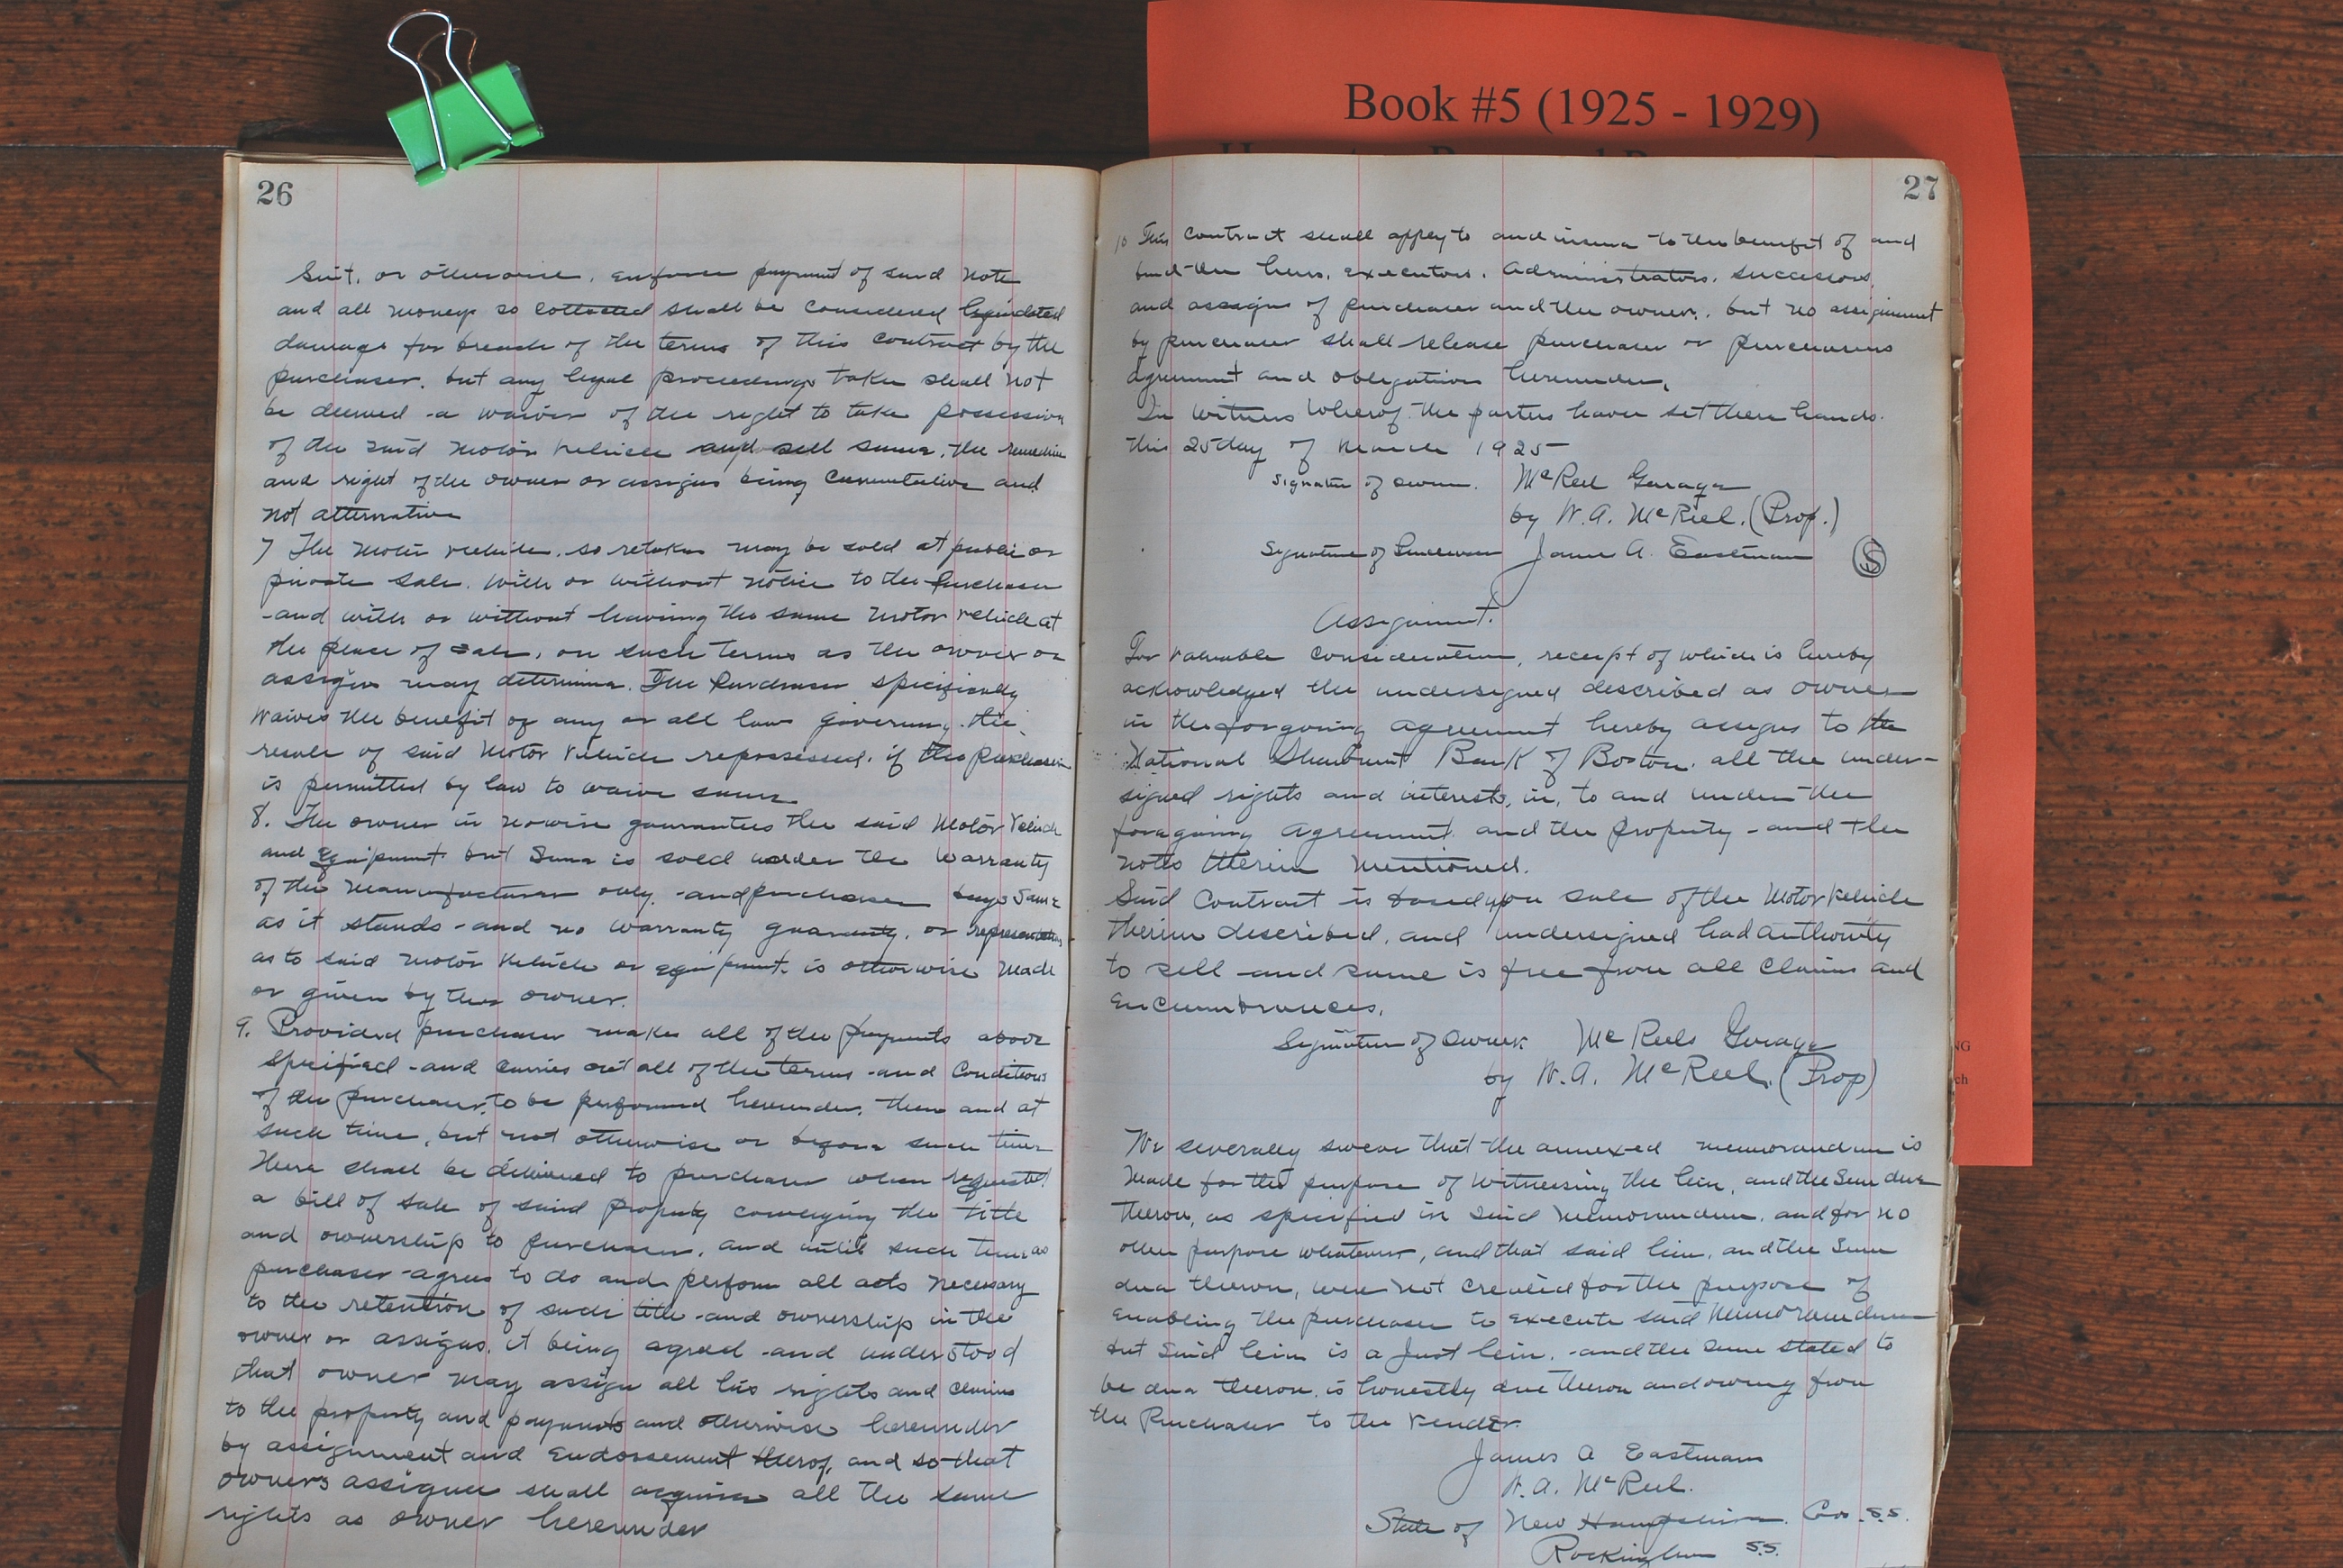 Book #5 (1925 - 1929)
26
Suit, or otherwise, enforce payment of said note
and all moneys so collected shall be considered liquidated
damage for breach of the terms of this contract by the
purchaser, but any legal proceedings taken shall not
be deemed a waiver of the right to take possession
of the said motor vehicle and sell same, the remedies
and right of the owner or assigns being cumulative and
not alternative
7 The motor vehicle, so retaken may be sold at public or
private sale, with or without notice to the Purchaser
and with or without having the same motor vehicle at
the place of sale, on such terms as the owner or
assigns may determine. The Purchaser specifically
waives the benefit of any or all laws governing the
resale of said motor vehicle repossessed, if the Purchaser
is permitted by law to waive same
8. The owner in nowise guarantees the said Motor Vehicle
and Equipment but Same is sold under the Warranty
of the manufacturer only, and purchaser buys same
as it stands and no warranty guaranty, or representation
as to said motor vehicle or equipment, is otherwise made
or given by the owner.
9. Provided purchaser makes all of the payments above
specified and carries out all of the terms and conditions
of the purchaser, to be performed hereunder, then and at
such time, but not otherwise or before such time
there shall be delivered to purchaser when requested
a bill of sale of said property conveying the title
and ownership to purchaser, and until such time as
purchaser agrees to do and perform all acts necessary
to the retention of such title and ownership in the
owner or assigns, it being agreed and understood
that owner may assign all his rights and claims
to the property and payments and otherwise hereunder
by assignment and Endorsement thereof, and so that
owners assignee shall acquire all the same
rights as owner hereunder
27
10 This contract shall apply to and inure to the benefit of and
bind the heirs, executors, administrators, successors,
and assigns of purchaser and the owner, but no assignment
by purchaser shall release purchaser or purchasers
agreement and obligation hereunder.
In Witness Wherof the parties haver set there hands.
this 25 day of March 1925
Signature of owner. McReel Garage
by W. A. McReel. (Prop.)
Signature of Purchaser James A. Eastman S
Assignment.
For valuable consideration, receipt of which is hereby
acknowledged the undersigned described as owner
in the forgoing agreement hereby assigns to the
National Shawmut Bank of Boston. all the under-
signed rights and interests, in, to and under the
foregoing Agreement and the property and the
notes therein mentioned.
Said Contract is based upon sale of the Motor Vehicle
therein described, and undersigned had authority
to sell and same is free from all claims and
encumbrances.
Signature of Owner McReels Garage
by W. A. McReel. (Prop)
We severally swear that the annexed memorandum is
made for the purpose of witnessing the lien, and the Sum due
theron, as specified in said memorandum, and for no
other purpose whatever, and that said lien, and the Sum
due theron, were not created for the purpose of
enabling the purchaser to execute said memorandum
but Said lein is a Just lein, and the sum stated to
be due theron, is honestly due theron and owing from
the Purchaser to the Vender.
James A Eastman
W. A. McReel.
State of New Hampshire. Co. S.S.
Rockingham SS.